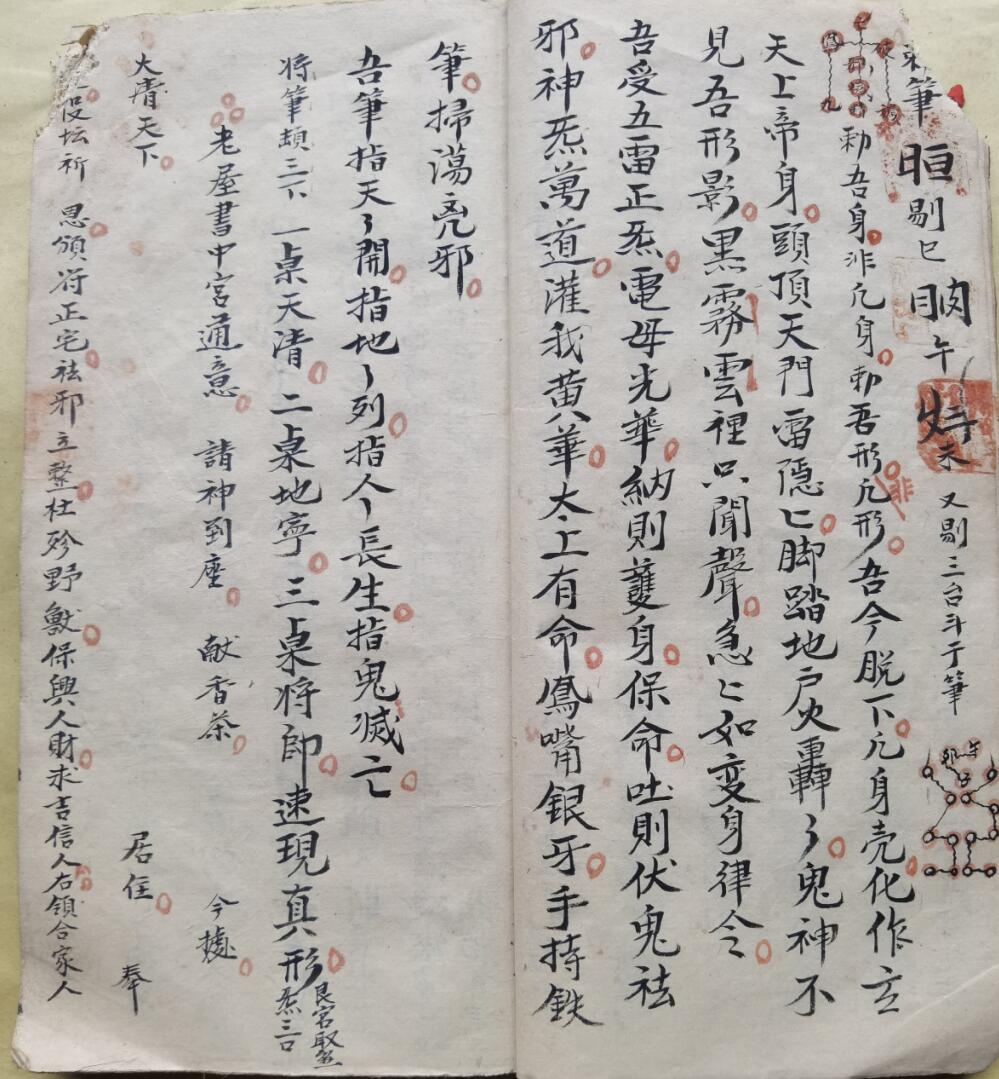 筆 晅 剔巳 眪 午 焠 未 又剔三台斗于筆
勅吾身非凢身勅吾形非凢形吾今脫下凢身壳化作立
天上帝身頭頂天門雷隱匕脚踏地户火轟々鬼神不
見吾形影黑霧雲裡只聞聲急匕如变身律令
吾受五雷正炁電母光華納則護身保命吐則伏鬼祛
邪神炁萬道灌我黄華太上有命鳳嘴銀牙手持鉄
筆掃蕩兇邪
吾筆指天々開指地々列指人々長生指鬼滅亡
将筆頡三下 一桌天清二桌地寧三桌将帥速現真形 艮宮取炁三口
老屋書中宮通意 請神到座 献香茶 今據
大清天下 居住 奉
設坛祈 恩頒符正宅祛邪立整杜殄野獸保興人財求吉信人右領合家人